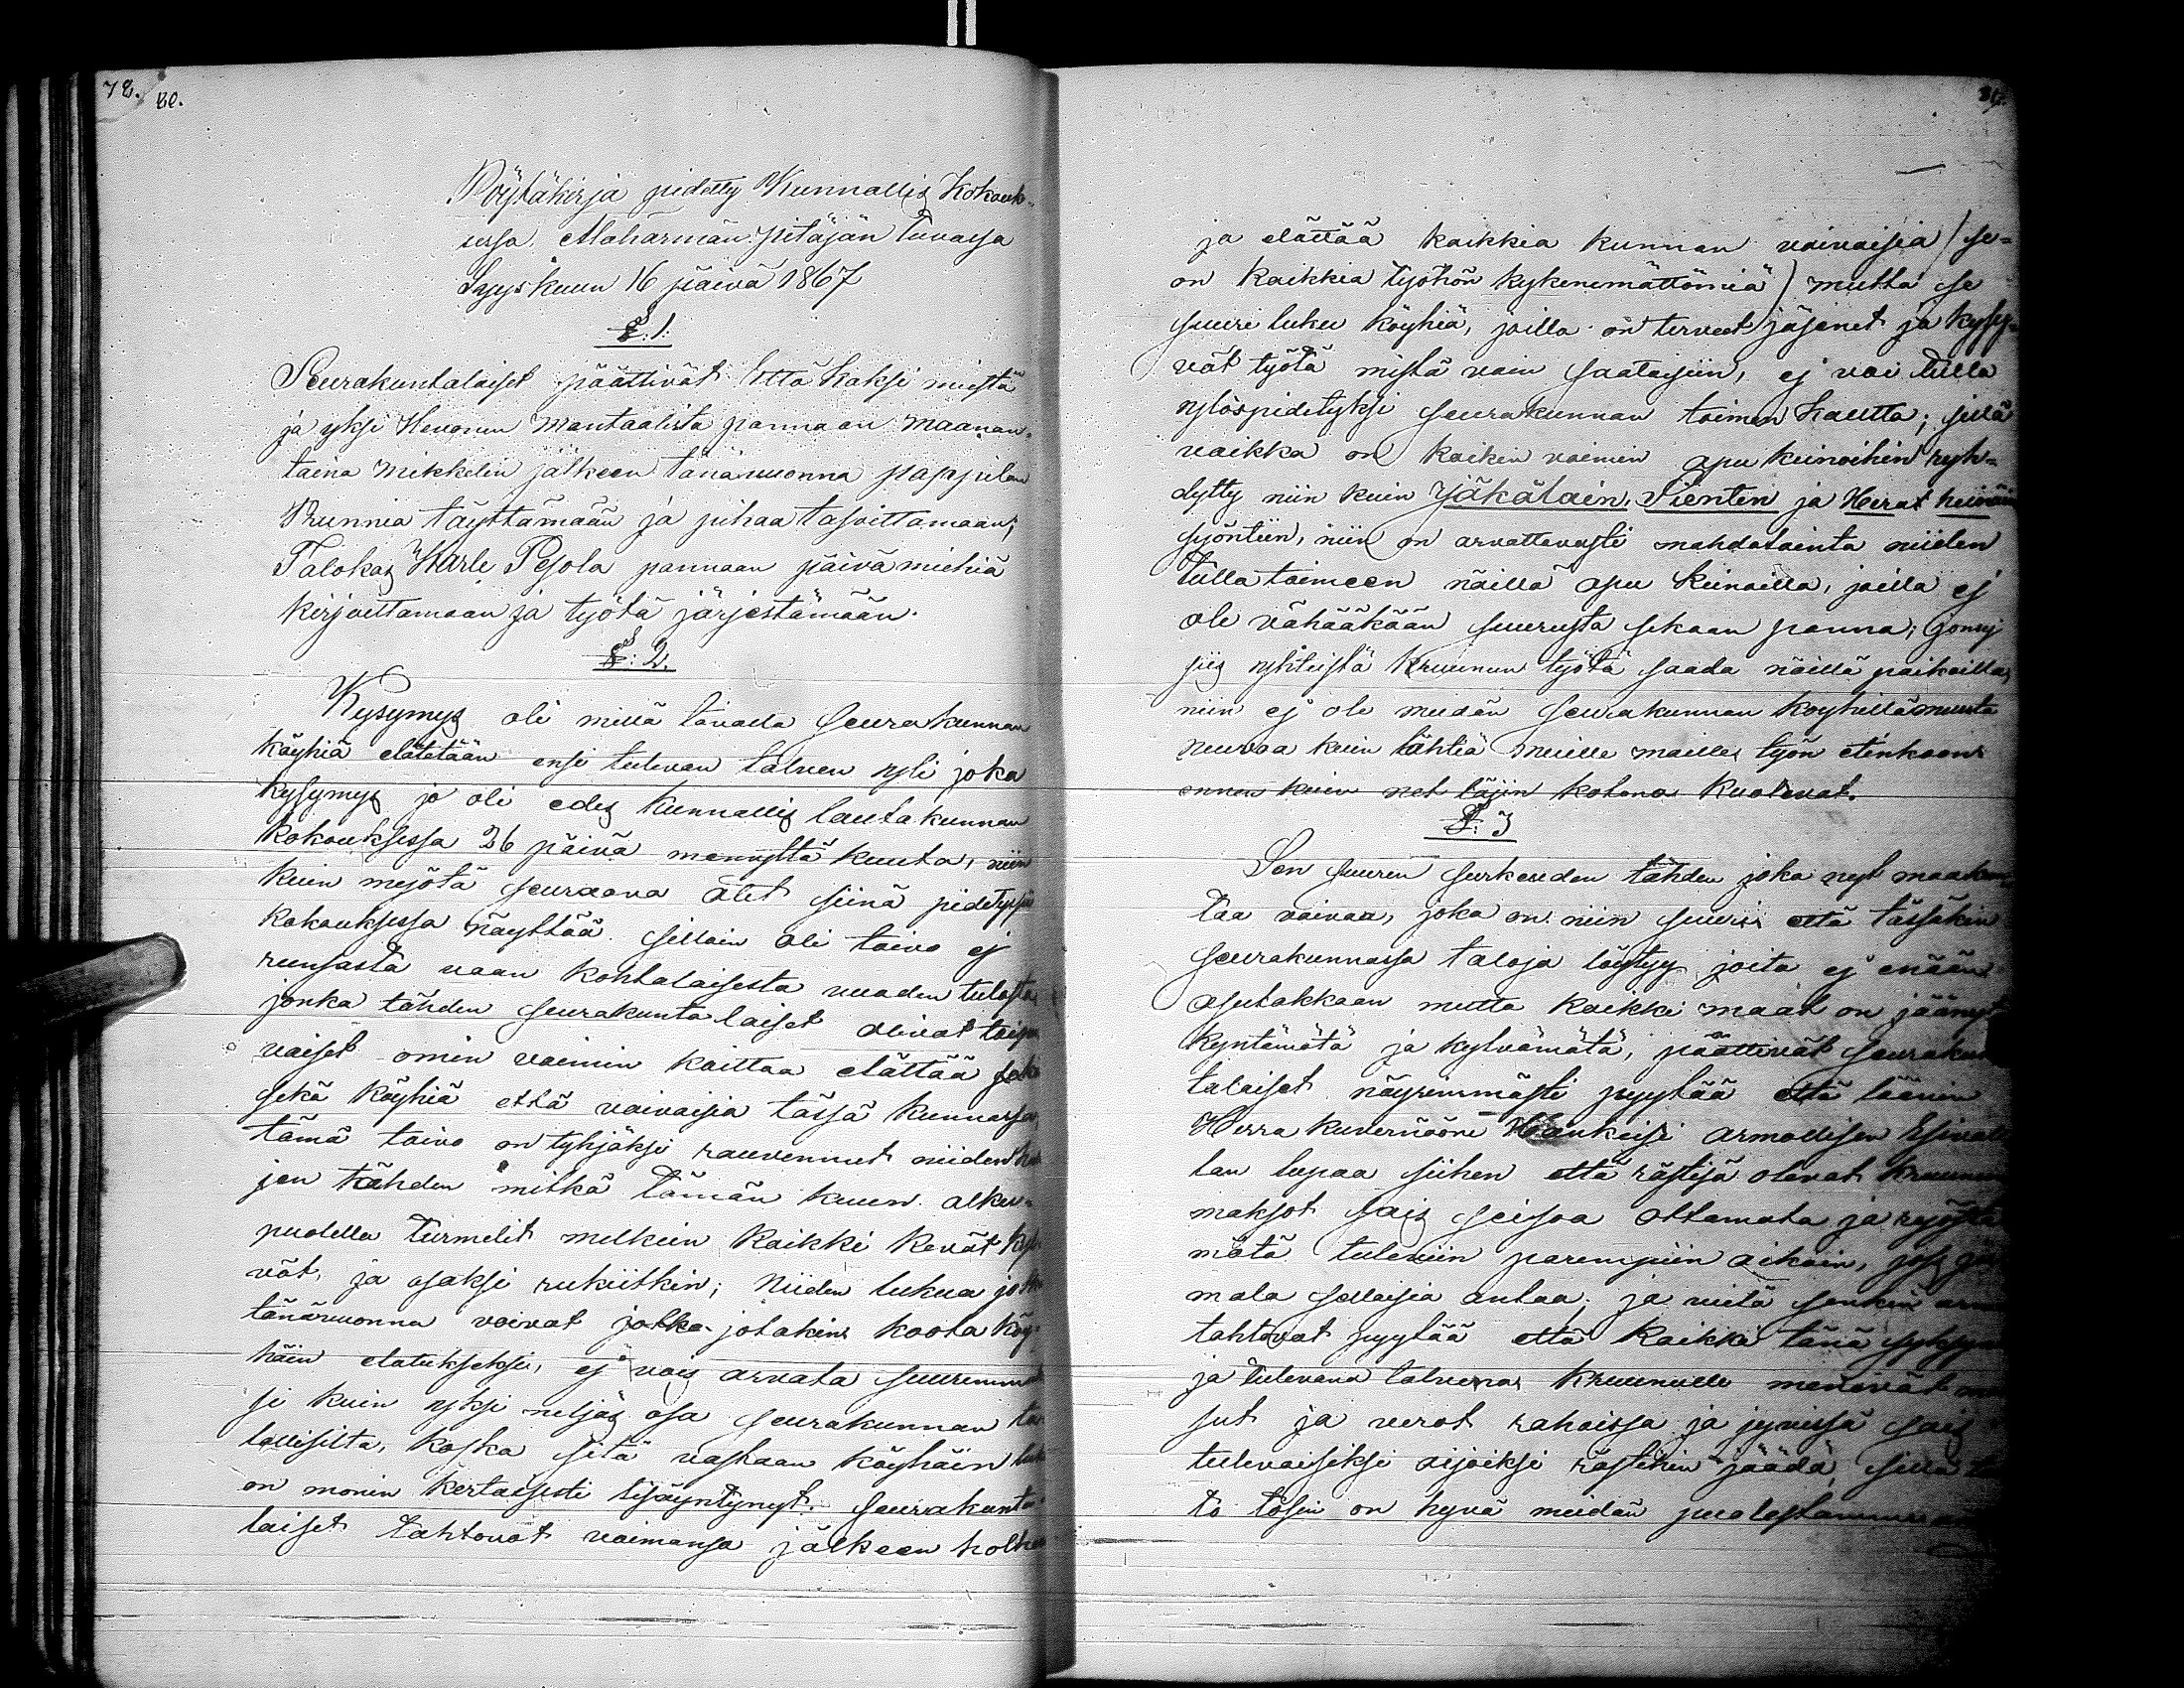 78. 80.
Pöytäkirja pidetty Kunnallis Kokouk-
sessa, Alahärmän pitäjän tuvassa
Syyskuun 16 päivä 1867
§. 1.
Seurakuntalaiset päättivät että kaksi miestä
ja yksi Hevonen Mantaalista pannaan maanan-
taina Mikkelin jälkeen tänävuonna pappilan
Brunnia täyttämään ja pihaa tasoittamaan;
Talokas Karle Pesola pannaan päivämiehiä
kirjoittamaan ja työtä järjestämään.
§: 2.
Kysymys oli millä tavalla seurakunnan
köyhiä elätetään ensi tulevan talven yli joka
kysymys jo oli edes kunnallis lautakunnan
kokouksessa 26 päivä mennyttä kuuta, niin
kuin myötä seuraava ålit siinä pidetyssä
kokouksessa näyttää. silloin oli toivo ej
runsasta vaan kohtalaisesta vuoden tulosta,
jonka tähden seurakuntalaiset olivat toivo
vaiset omin voimin koittaa elättää
sekä köyhiä että vaivaisia tässä kunnassa,
tämä toivo on tyhjäksi rauvennut niiden
jen tähden mitkä tämän kuun alku-
puolella turmelit melkein kaikki kevät kyl-
vöt, ja osaksi rukiitkin; Niiden lukua jotka
tänävuonna voivat jotka jotakin koota köy-
häin elatukseksi, ej vois arvata suuremma
si kuin yksi neljäs osa seurakunnan ta-
lollisilta, koska sitä vastaan köyhäin luku
on monin kertaisesti lisäyntynyt. Seurakunta-
laiset tahtovat voimansa jälkeen holhoa
ja elättää kaikkia kunnan vaivaisia (se-
on kaikkia työhön kykenemättömiä) mutta se
suuri luku köyhiä, joilla on terveet jäsenet ja kysy-
vät työtä mistä vain saataisiin, ej voi tulla
ylöspidetyksi seurakunnan toimen kautta; sillä
vaikka on kaikin voimin apu keinoihin ryh-
dytty niin kuin Jäkäläin, Sienten ja Herat heinäin
syöntiin, niin on arvattavasti mahdotointa niiden
tulla toimeen näillä apu keinoilla, joilla ej
ole vähääkään suurusta sekaan panna; Jonsej
siis yhteistä Kruunun työtä saada näillä paikoilla,
niin ej ole meidän seurakunnan köyhillä muuta
neuvoa kuin lähteä muille maille, työn etinkoon
ennen kuin net läjin kotona kuolevat.
§: 3
Sen suuren surkeuden tähden joka nyt maakun-
taa vaivaa, joka on niin suuri että tässäkin
seurakunnassa taloja löytyy joita ej enään
asutakkaan mutta kaikki maat on jäänyt
kyntämätä ja kylvämätä, päättivät seurakun
talaiset nöyrimmästi pyytää että läänin
Herra kuvernööri Hankkisi armollisen Esival
lan lupaa siihen että rästisä olevat kruunun
maksot sais seisoa ottamata ja ryöstä
mätä tuleviin parempiin aikoin, jos Ju
mala sellaisia antaa; ja vielä senkin armon
tahtovat pyytää että kaikki tänä syksynä
ja tulevana talvena kruunulle menevät
sut ja verot rahoissa ja jyvissä sais
tulevaiseksi aijoiksi rästihin jäädä, sillä
to tosin on hyvä meidän puolestamme